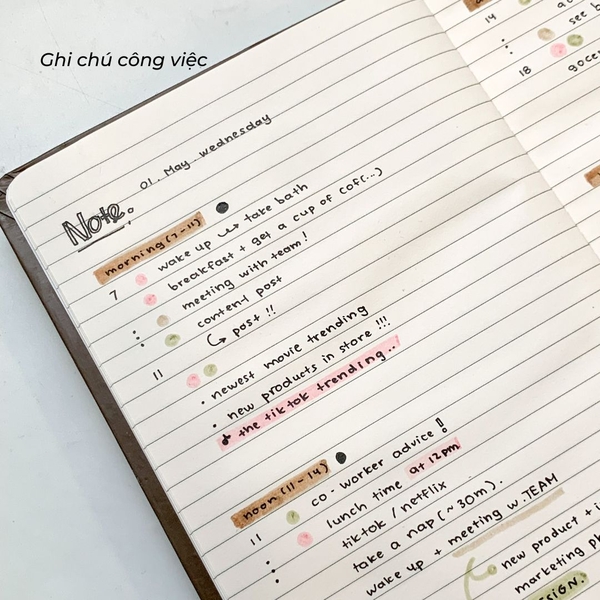 Ghi chú công việc
01. May wednesday
Note:
morning (7-11)
7 wake up ↪ take bath
breakfast + get a cup of cof(...)
meeting with team!
content post
↪ post !!
11
• newest movie trending
• new products in store !!!
♪ the tiktok trending..!
noon (11-14)
11 co-worker advice!
lunch time at 12pm
tiktok / netflix
take a nap (~30m).
wake up + meeting w. TEAM
new product +
marketing
14
see
18